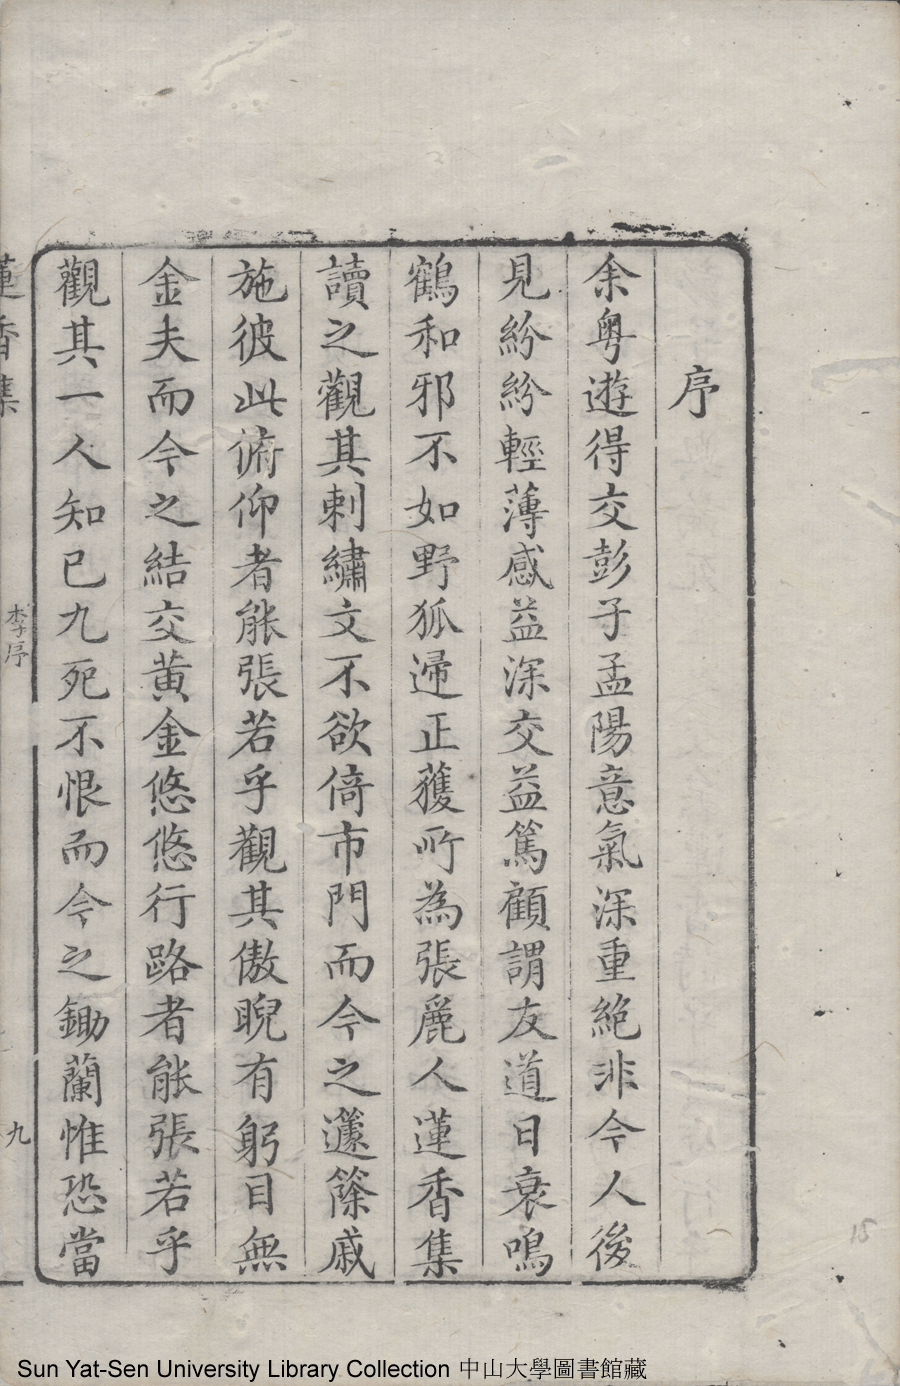 序
余粤遊得交彭子孟陽意氣深重絕非今人後
見紛紛輕薄感益深交益篤顧謂友道日衰鳴
鶴和邪不如野狐遆正獲所為張麗人蓮香集
讀之觀其刺繡文不欲倚市門而今之籧篨戚
施彼此俯仰者能張若乎觀其傲睨有躬目無
金夫而今之結交黄金悠悠行路者能張若乎
觀其一人知已九死不恨而今之鋤蘭惟恐當
蓮香集
李序
九
15
Sun Yat-Sen University Library Collection 中山大學圖書館藏